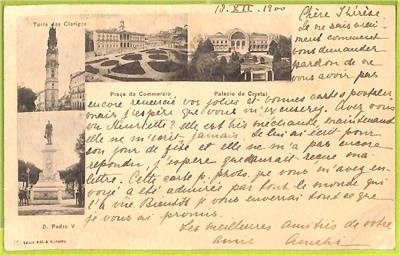 18.XII.1900
Torre dos Clerigos
Praça do Commercio
Palacio de Crystal
D. Pedro V
Chère Thérèse.
Je ne sais vrai-
ment comment
vous demander
pardon de ne
vous avoir pas
encore remercié vos jolies et bonnes cartes postales
mais j'espère que vous m'excuserez. Avez vous
vu Henriette? elle est bis méchante, maintenant
elle ne m'écrit jamais. Je lui ai écrit pour
son jour de fête et elle ne m'a pas encore
repondu, j'espère qu'elle aurait reçue ma
lettre. Cette carte p. photo. que vous m'avez en-
voyé a été admirée par tout le monde qui
l'a vue. Bientôt je vous enverai tout ce que
je vous ai promis.
Les meilleures amitiés de votre
amie Amelia